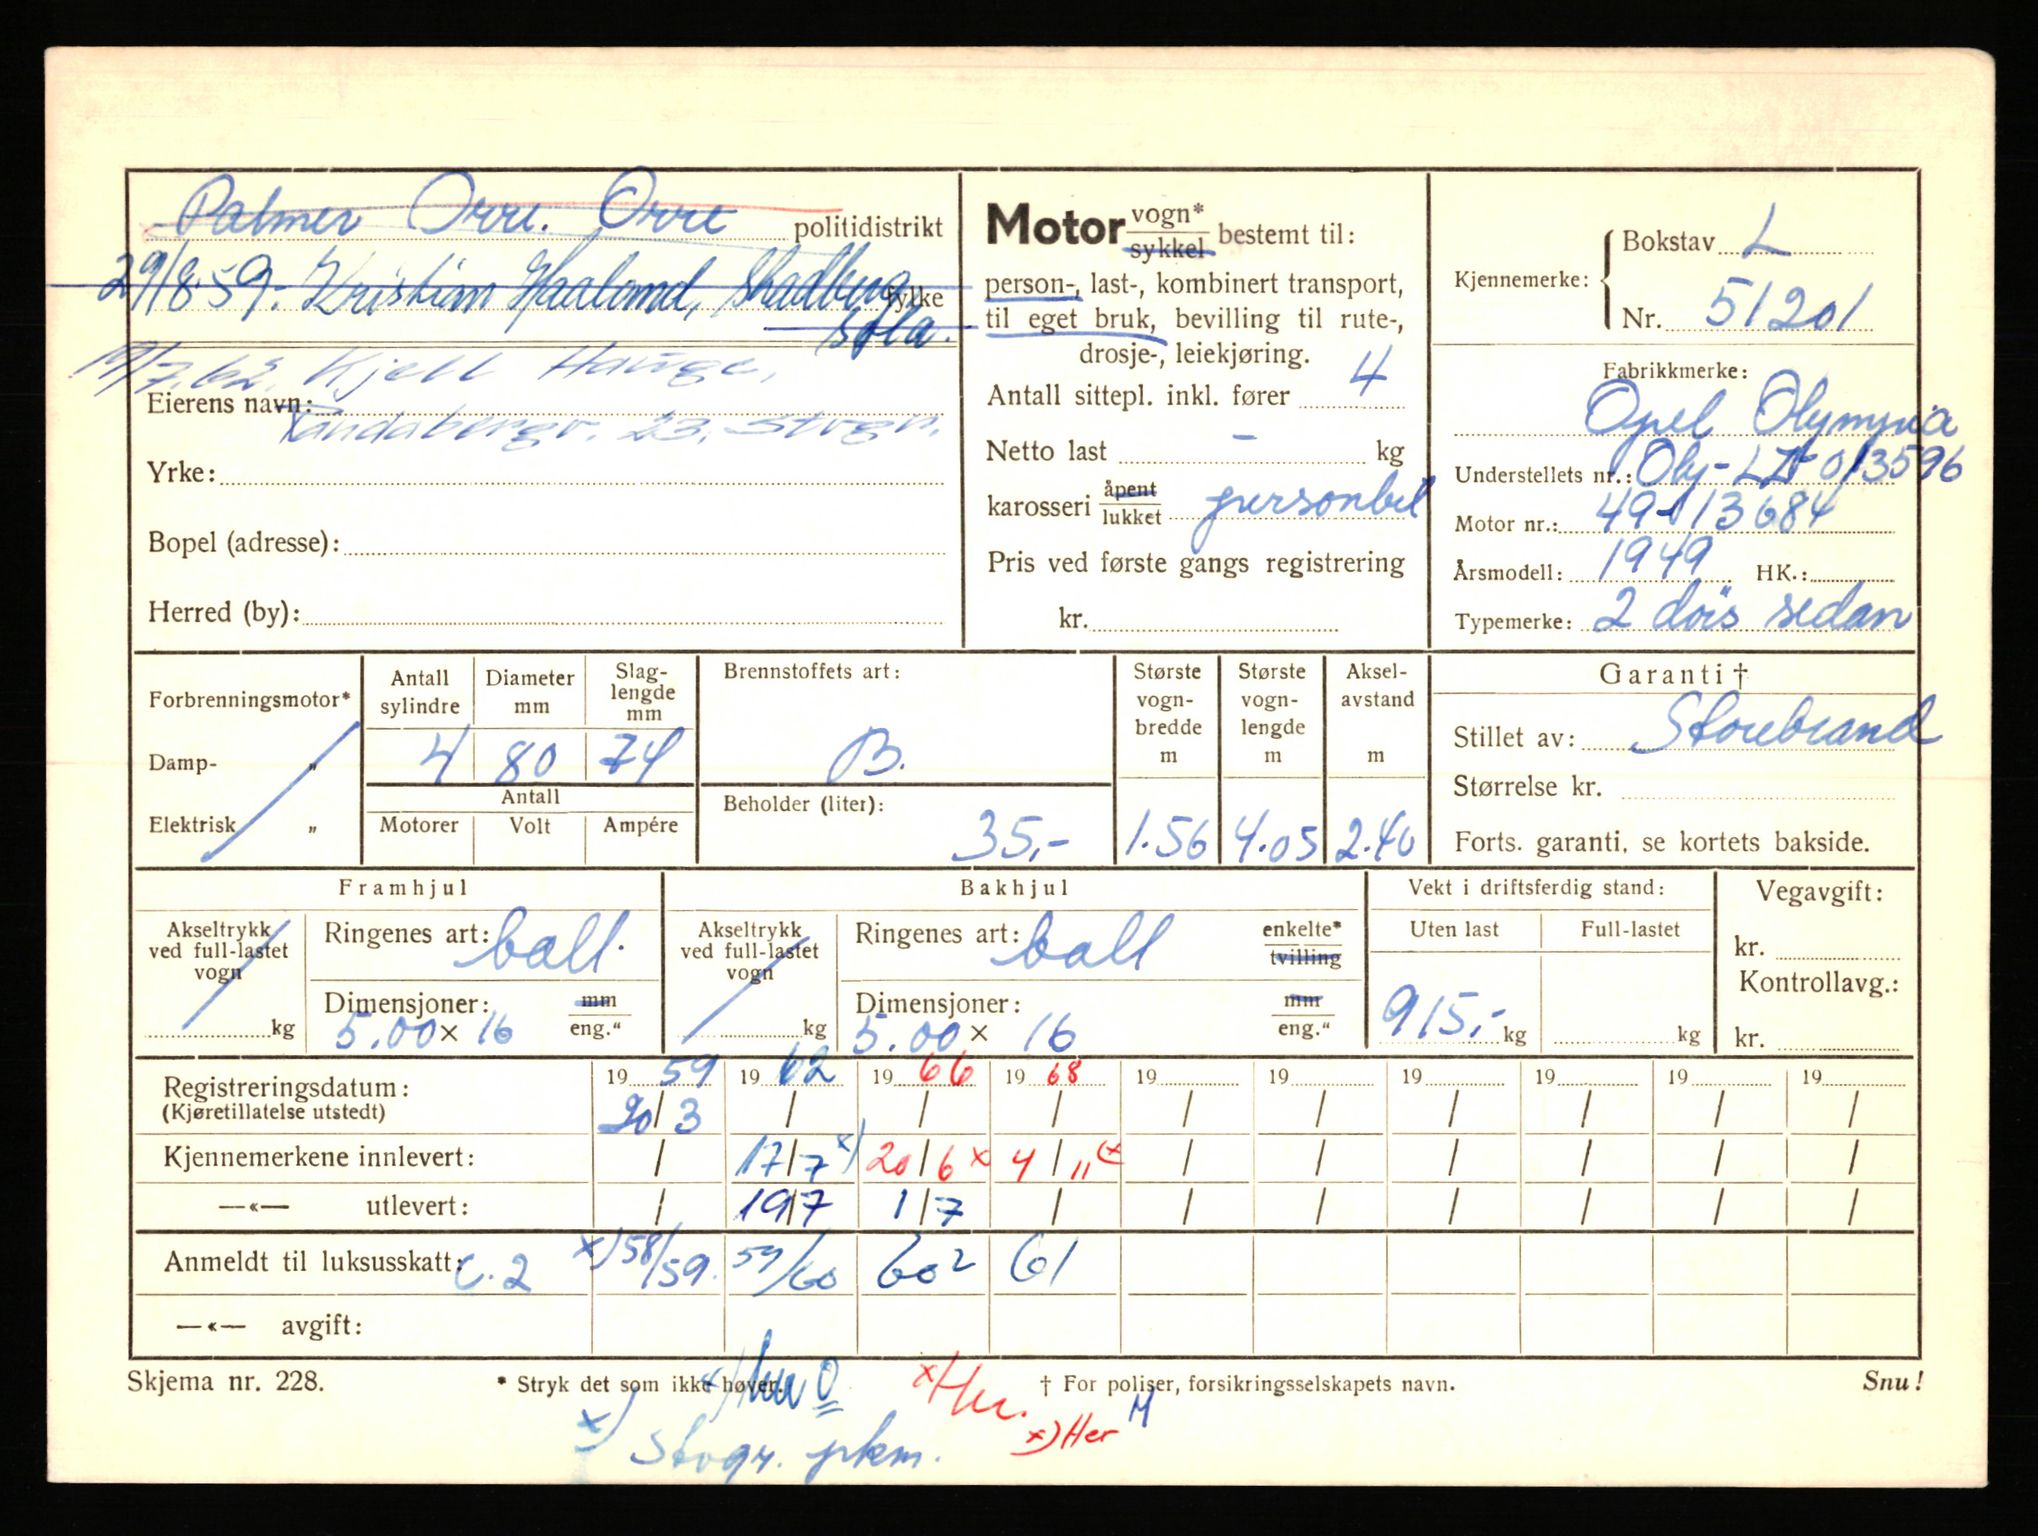 Palmer Orre. Orre politidistrikt
29/8.59. Kristian Haaland, Skadberg fylke
Sola.
19/7.62. Kjell Hauge,
Eierens navn:
Randabergv. 23, Stvgr.
Yrke:
Bopel (adresse):
Herred (by):
Motor vogn* sykkel bestemt til:
person-, last-, kombinert transport,
til eget bruk, bevilling til rute-,
drosje-, leiekjøring.
Antall sittepl. inkl. fører 4
Netto last – kg
karosseri åpent lukket personbil
Pris ved første gangs registrering
kr.
Kjennemerke: Bokstav L
Nr. 51201
Fabrikkmerke:
Opel Olympia
Understellets nr.: Oly-LZ-013596
Motor nr.: 49-13684
Årsmodell: 1949 HK.:
Typemerke: 2 dörs sedan
Forbrenningsmotor*
Damp- „
Elektrisk „
Antall sylindre Diameter mm Slag-lengde mm
4 80 74
Antall
Motorer Volt Ampére
Brennstoffets art:
B.
Beholder (liter):
35,-
Største vogn-bredde m
1.56
Største vogn-lengde m
4.05
Aksel-avstand m
2.40
Garanti †
Stillet av: Storebrand
Størrelse kr.
Forts. garanti, se kortets bakside.
Framhjul
Akseltrykk ved full-lastet vogn
kg
Ringenes art: ball.
Dimensjoner: mm
5.00 × 16 eng."
Bakhjul
Akseltrykk ved full-lastet vogn
kg
Ringenes art: ball enkelte* tvilling
Dimensjoner: mm
5.00 × 16 eng."
Vekt i driftsferdig stand:
Uten last Full-lastet
915,- kg kg
Vegavgift:
kr.
Kontrollavg.:
kr.
Registreringsdatum: 19 59 19 62 19 66 19 68 19 19 19 19 19 19
(Kjøretillatelse utstedt) 20/3 / / / / / / / / /
Kjennemerkene innlevert: / 17/7 x) 20/6 x 4/11 (x / / / / / /
—«— utlevert: / 19/7 1/7 / / / / / / /
Anmeldt til luksusskatt: C.2 x) 58/59. 59/60 60² 61
—«— avgift:
Skjema nr. 228. * Stryk det som ikke høver. † For poliser, forsikringsselskapets navn. Snu!
x) her O x) Her.
x) Her M
x) Stvgr. pkm.